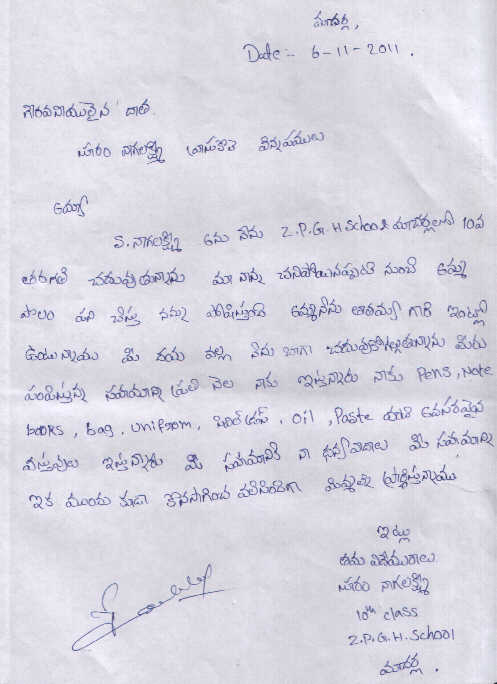 మాచర్ల,
Date:- 6-11-2011.
గౌరవనీయులైన దాత.
పూరం నాగలక్ష్మి వ్రాసుకొనే విన్నపములు
అయ్యా
పి. నాగలక్ష్మి అను నేను Z.P.G.H School మాచర్లలో 10వ
తరగతి చదువుతున్నాను మా నాన్న చనిపోయినప్పటి నుండి అమ్మ
పొలం పని చేస్తు నన్ను పోషిస్తుంది అమ్మనేను తాతమ్మ గారి ఇంట్లో
ఉంటున్నాము మీ దయ వల్ల నేను బాగా చదువుకోగల్గుతున్నాను మీరు
పంపిస్తున్న సహాయాన్ని ప్రతి నెల నాకు ఇస్తున్నారు నాకు Pens, Note
books, bag, uniform, , Oil, Paste వంటి అవసరమైన
వస్తువులు ఇస్తున్నారు మీ సహాయానికి నా ధన్యవాదాలు మీ సహాయాన్ని
ఇక ముందు కూడా కొనసాగించ వలసిందిగా మిమ్మల్ని ప్రార్థిస్తున్నాము
ఇట్లు
తమ విదేయురాలు.
పూరం నాగలక్ష్మి
10th class
Z.P.G.H. School
మాచర్ల.